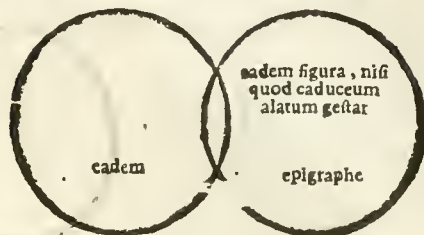 eadem
eadem figura, niſi
quod caduceum
alatum geſtat
epigraphe